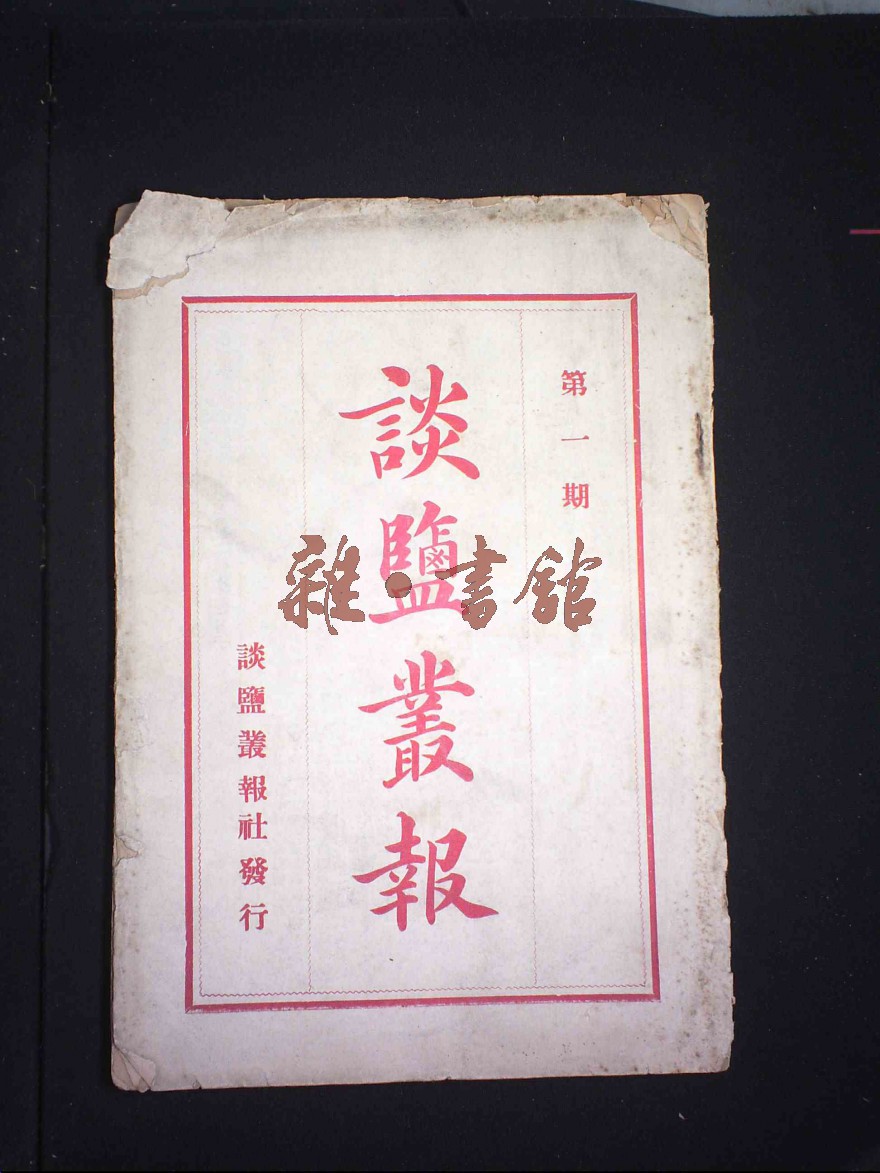 第一期
談鹽叢報
談鹽叢報社發行
雜·書館